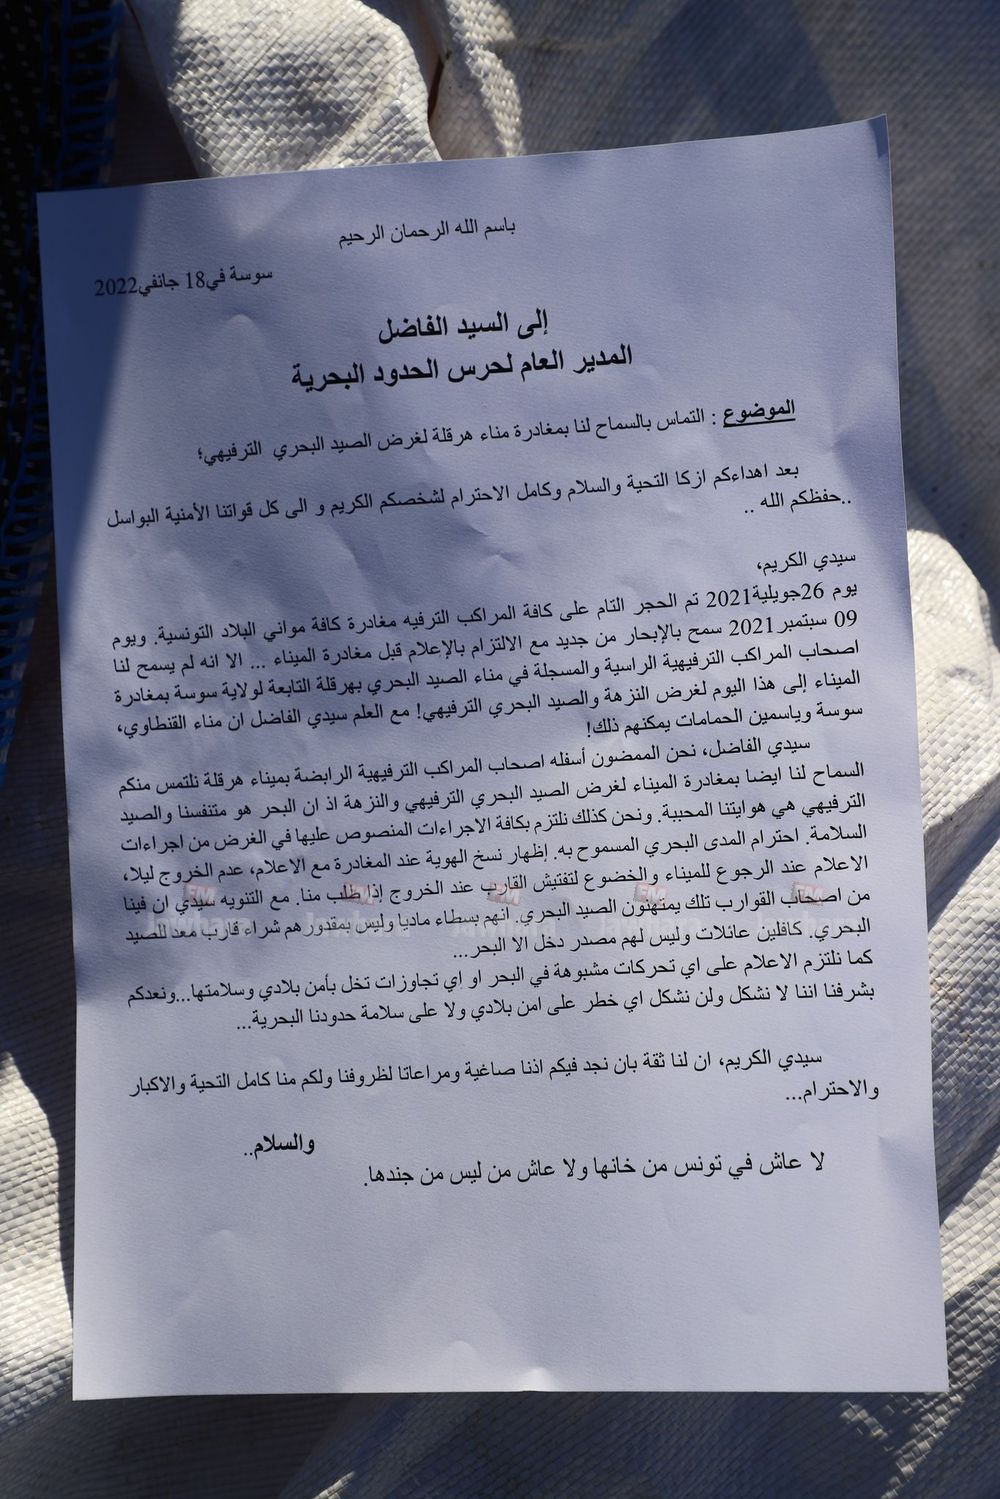 باسم الله الرحمان الرحيم
سوسة في18 جانفي2022
إلى السيد الفاضل
المدير العام لحرس الحدود البحرية
الموضوع : التماس بالسماح لنا بمغادرة مناء هرقلة لغرض الصيد البحري الترفيهي؛
بعد اهداءكم ازكا التحية والسلام وكامل الاحترام لشخصكم الكريم و الى كل قواتنا الأمنية البواسل
..حفظكم الله ..
سيدي الكريم،
يوم 26جويلية2021 تم الحجر التام على كافة المراكب الترفيه مغادرة كافة مواني البلاد التونسية. ويوم
09 سبتمبر2021 سمح بالإبحار من جديد مع الالتزام بالإعلام قبل مغادرة الميناء ... الا انه لم يسمح لنا
اصحاب المراكب الترفيهية الراسية والمسجلة في مناء الصيد البحري بهرقلة التابعة لولاية سوسة بمغادرة
الميناء إلى هذا اليوم لغرض النزهة والصيد البحري الترفيهي! مع العلم سيدي الفاضل ان مناء القنطاوي،
سوسة وياسمين الحمامات يمكنهم ذلك!
سيدي الفاضل، نحن الممضون أسفله اصحاب المراكب الترفيهية الرابضة بميناء هرقلة نلتمس منكم
السماح لنا ايضا بمغادرة الميناء لغرض الصيد البحري الترفيهي والنزهة اذ ان البحر هو متنفسنا والصيد
الترفيهي هي هوايتنا المحببة. ونحن كذلك نلتزم بكافة الاجراءات المنصوص عليها في الغرض من اجراءات
السلامة. احترام المدى البحري المسموح به. إظهار نسخ الهوية عند المغادرة مع الاعلام، عدم الخروج ليلا،
الاعلام عند الرجوع للميناء والخضوع لتفتيش القارب عند الخروج إذا طلب منا. مع التنويه سيدي ان فينا
من اصحاب القوارب تلك يمتهنون الصيد البحري. انهم بسطاء ماديا وليس بمقدورهم شراء قارب معد للصيد
البحري. كافلين عائلات وليس لهم مصدر دخل الا البحر...
كما نلتزم الاعلام على اي تحركات مشبوهة في البحر او اي تجاوزات تخل بأمن بلادي وسلامتها...ونعدكم
بشرفنا اننا لا نشكل ولن نشكل اي خطر على امن بلادي ولا على سلامة حدودنا البحرية...
سيدي الكريم، ان لنا ثقة بان نجد فيكم اذنا صاغية ومراعاتا لظروفنا ولكم منا كامل التحية والاكبار
والاحترام...
والسلام..
لا عاش في تونس من خانها ولا عاش من ليس من جندها.